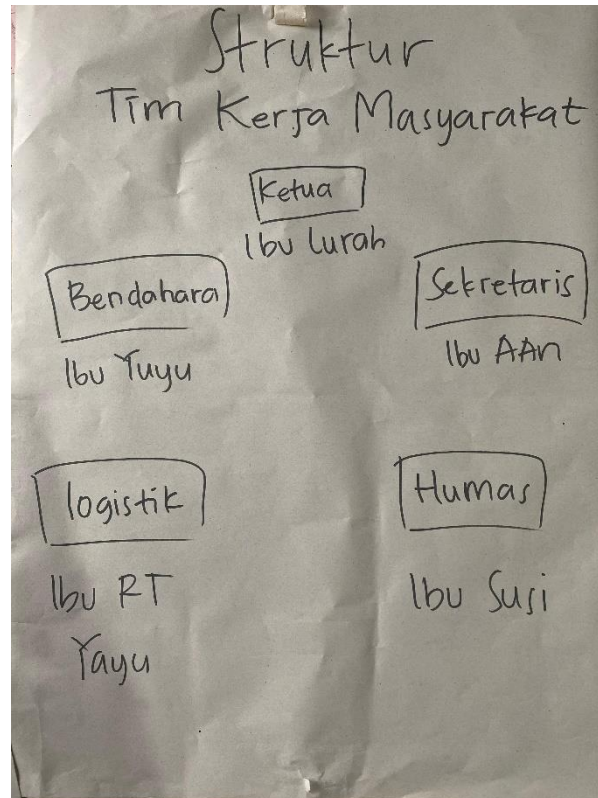 Struktur
Tim Kerja Masyarakat
Ketua
Ibu Lurah
Bendahara
Ibu Yuyu
Sekretaris
Ibu AAn
logistik
Ibu RT
Yayu
Humas
Ibu Susi